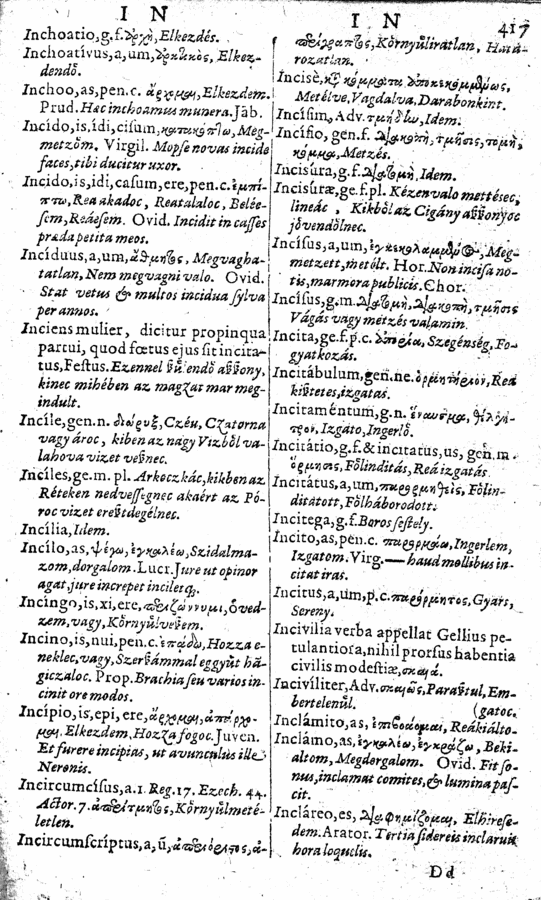 I N
Inchoatio, g.f. ἀρχὴ, Elkezdés.
Inchoatívus, a, um, ἀρκτικὸς, Elkez-
dendő.
Inchoo, as, pen. c. ἄρχομαι, Elkezdem.
Prud. Hac inchoamus munera. Jab.
Incído, is, ídi, cisum, κατακόπτω, Meg-
metzőm. Virgil. Mopse novas incide
faces, tibi ducitur uxor.
Incido, is, idi, casum, ere, pen. c. ἐμπί-
πτω, Rea akadoc, Reatalaloc, Belée-
sem, Reáesem. Ovid. Incidit in casses
præda petita meos.
Incíduus, a, um, Megvagha-
tatlan, Nem megvagni valo. Ovid.
Stat vetus & multos incidua sylva
per annos.
Inciens mulier, dicitur propinqua
partui, quod fœtus ejus sit incita-
tus, Festus. Ezennel endő
kinec mihében az magzat mar meg-
indult.
Incíle, gen. n. διώρυξ, Czéu, Czatorna
vagy ároc, kiben az nagy Vizből va-
lahova vizet
Incíles, ge. m. pl. Arkoczkác, kikben az
Réteken nedvessegnec akaért az Pó-
roc vizet
Incília, Idem.
Incílo, as, ψέγω, ἐγκαλέω, Szidalma-
zom, dorgalom. Lucr. Jure ut opinor
agat, jure increpet inciletq;.
Incingo, is, xi, ere, περιζώννυμι, őved-
zem, vagy, Kőrnyűlveßem.
Incino, is, nui, pen. c. ἐπάδω, Hozza e-
neklec, vagy, eggyűt hã-
giczaloc. Prop. Brachia seu varios in-
cinit ore modos.
Incípio, is, epi, ere, ἄρχομαι, ἀπάρχο-
μαι. Elkezdem, Hozza fogoc. Juven.
Et furere incipias, ut avunculus ille
Neronis.
Incircumcísus, a. 1. Reg. 17. Ezech. 44.
Actor. 7. ἀπερίτμητος, Kőrnyűlmeté-
letlen.
Incircumscríptus, a, ũ, ἀπεριόριστος, ἀ-
I N 417
περίγραπτος, Kőrnyűliratlan, Hatá-
rozatlan.
Incisè, Metélve, Vagdalva, Darabonkint.
Incísim, Adv. τμήδην, Idem.
Incísio, gen. f. διακοπὴ, τμῆσις, τομὴ,
κόμμα, Metzés.
Incisura, g.f. διατομὴ, Idem.
Incisuræ, ge. f. pl. Kézen valo mettésec,
lineác, Kikből az Cigány
jővendőlnec.
Incísus, a, um, Meg-
metzett, metőlt. Hor. Non incisa no-
tis, marmora publicis. Chor.
Incísus, g.m. διατομὴ, διακοπὴ, τμῆσις
Vágás vagy metzés valamin.
Incita, ge. f. p. c. ἀπορία, Szegénség, Fo-
gyatkozás.
Incitábulum, gen. ne. ὁρμητήριον, Rea
izgatas.
Incitaméntum, g. n. ἔναυσμα, θέλγη-
τρον, Izgato, Ingerlő.
Incitátio, g. f. & incitatus, us, gen. m.
ὅρμησις, Főlinditás, Reá izgatás.
Incitátus, a, um, παρορμηθεὶς, Főlin-
ditátott, Főlháborodott.
Incitega, g.f. Boros sestely.
Incito, as, pen. c. παρορμάω, Ingerlem,
Izgatom. Virg. — haud mollibus in-
citat iras.
Incitus, a, um, p. c. παρόρμητος, Gyărs,
Sereny.
Incivilia verba appellat Gellius pe-
tulantiora, nihil prorsus habentia
civilis modestiæ, σκαιά.
Incivíliter, Adv. σκαιῶς, Paraßtul, Em-
bertelenűl. (gatoc.
Inclámito, as, ἐπιβοάομαι, Reákiálto-
Inclámo, as, ἐγκαλέω, ἐγκράζω, Beki-
altom, Megdorgalom. Ovid. Fit so-
nus, inclamat comites, & lumina pas-
cit.
Incláreo, es, διαφημίζομαι, Elhirese-
dem. Arator. Tertia sidereis inclaruit
hora loquelis.
Dd